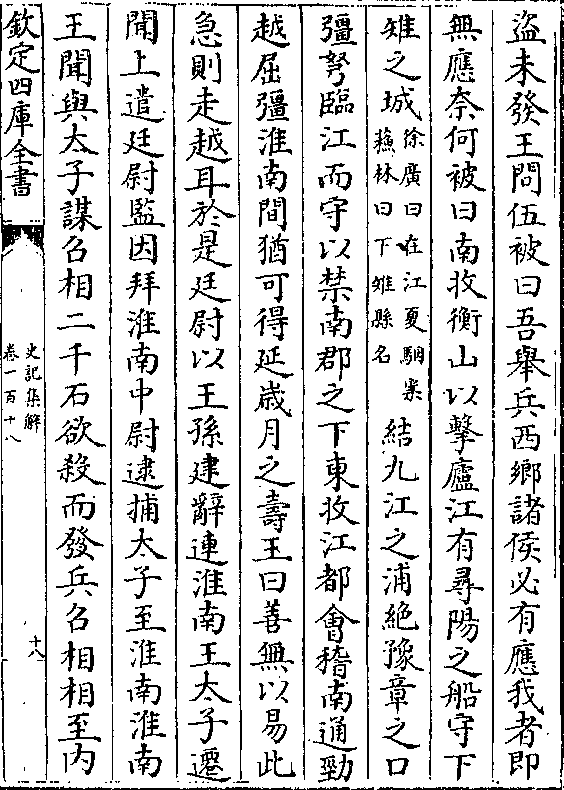 盜未發王問伍被曰吾舉兵西鄉諸侯必有應我者即
無應奈何被曰南收衡山以擊廬江有尋陽之船守下
雉之城徐廣曰在江夏駰案蘇林曰下雉縣名結九江之浦絶豫章之口
彊弩臨江而守以禁南郡之下東收江都會稽南通勁
越屈彊淮南間猶可得延歲月之壽王曰善無以易此
急則走越耳於是廷尉以王孫建辭連淮南王太子遷
聞上遣廷尉監因拜淮南中尉逮捕太子至淮南淮南
王聞與太子謀召相二千石欲殺而發兵召相相至内
欽定四庫全書
史記集解
卷一百十八
十八